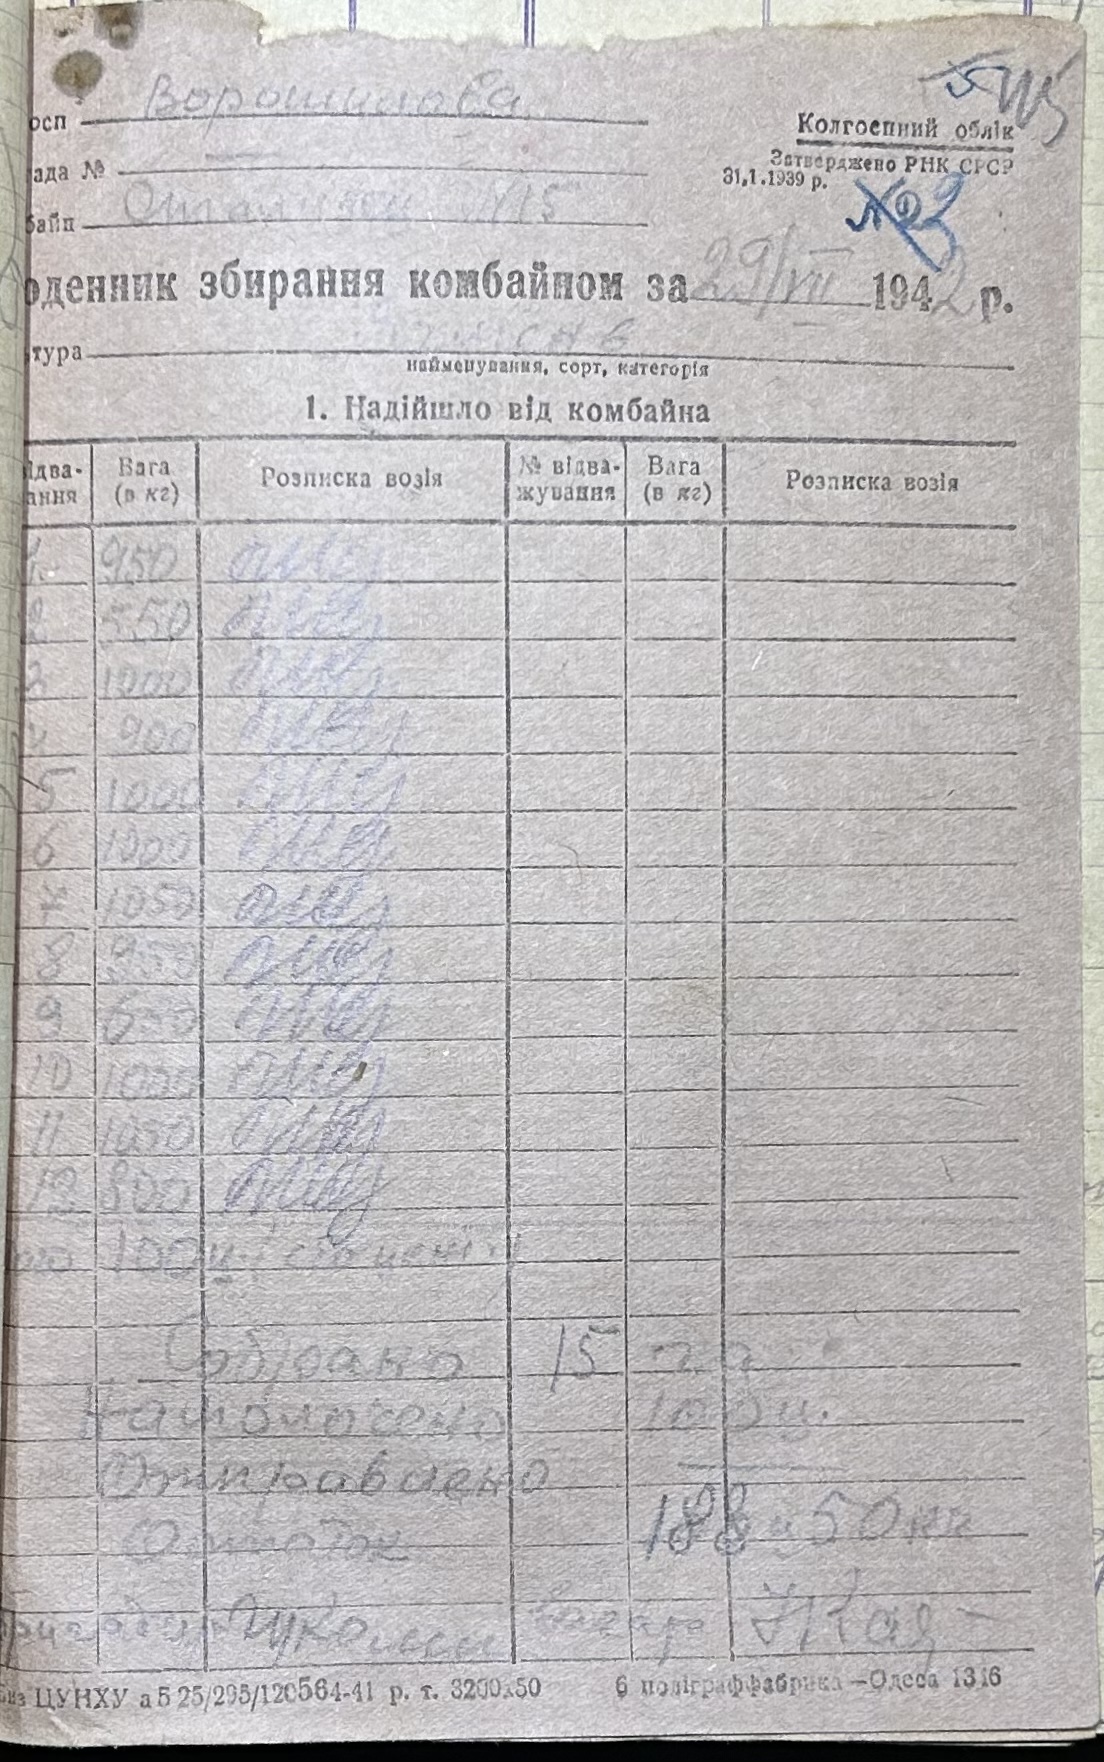 осп Ворошилова
Колгоспний облік
ада №
Затверджено РНК СРСР
31.1.1939 р.
байн Сталинец №15
№ 2
оденник збирання комбайном за 29/VII 1942 р.
тура
найменування, сорт, категорія
1. Надійшло від комбайна
ідва-ання Вага (в кг) Розписка возія № відва-жування Вага (в кг) Розписка возія
1 950
2 550
3 1000
4 900
5 1000
6 1000
7 1050
8 950
9 650
10 1000
11 1050
12 800
100 ц
Собрано 15 га
Намолочено 100 ц.
Отправлено —
Остаток 188 ц 50 кг
бригадир вагар
ЦУНХУ а 5 25/295/120564-41 р. т. 3200х50 6 поліграффабрика—Одеса 1316